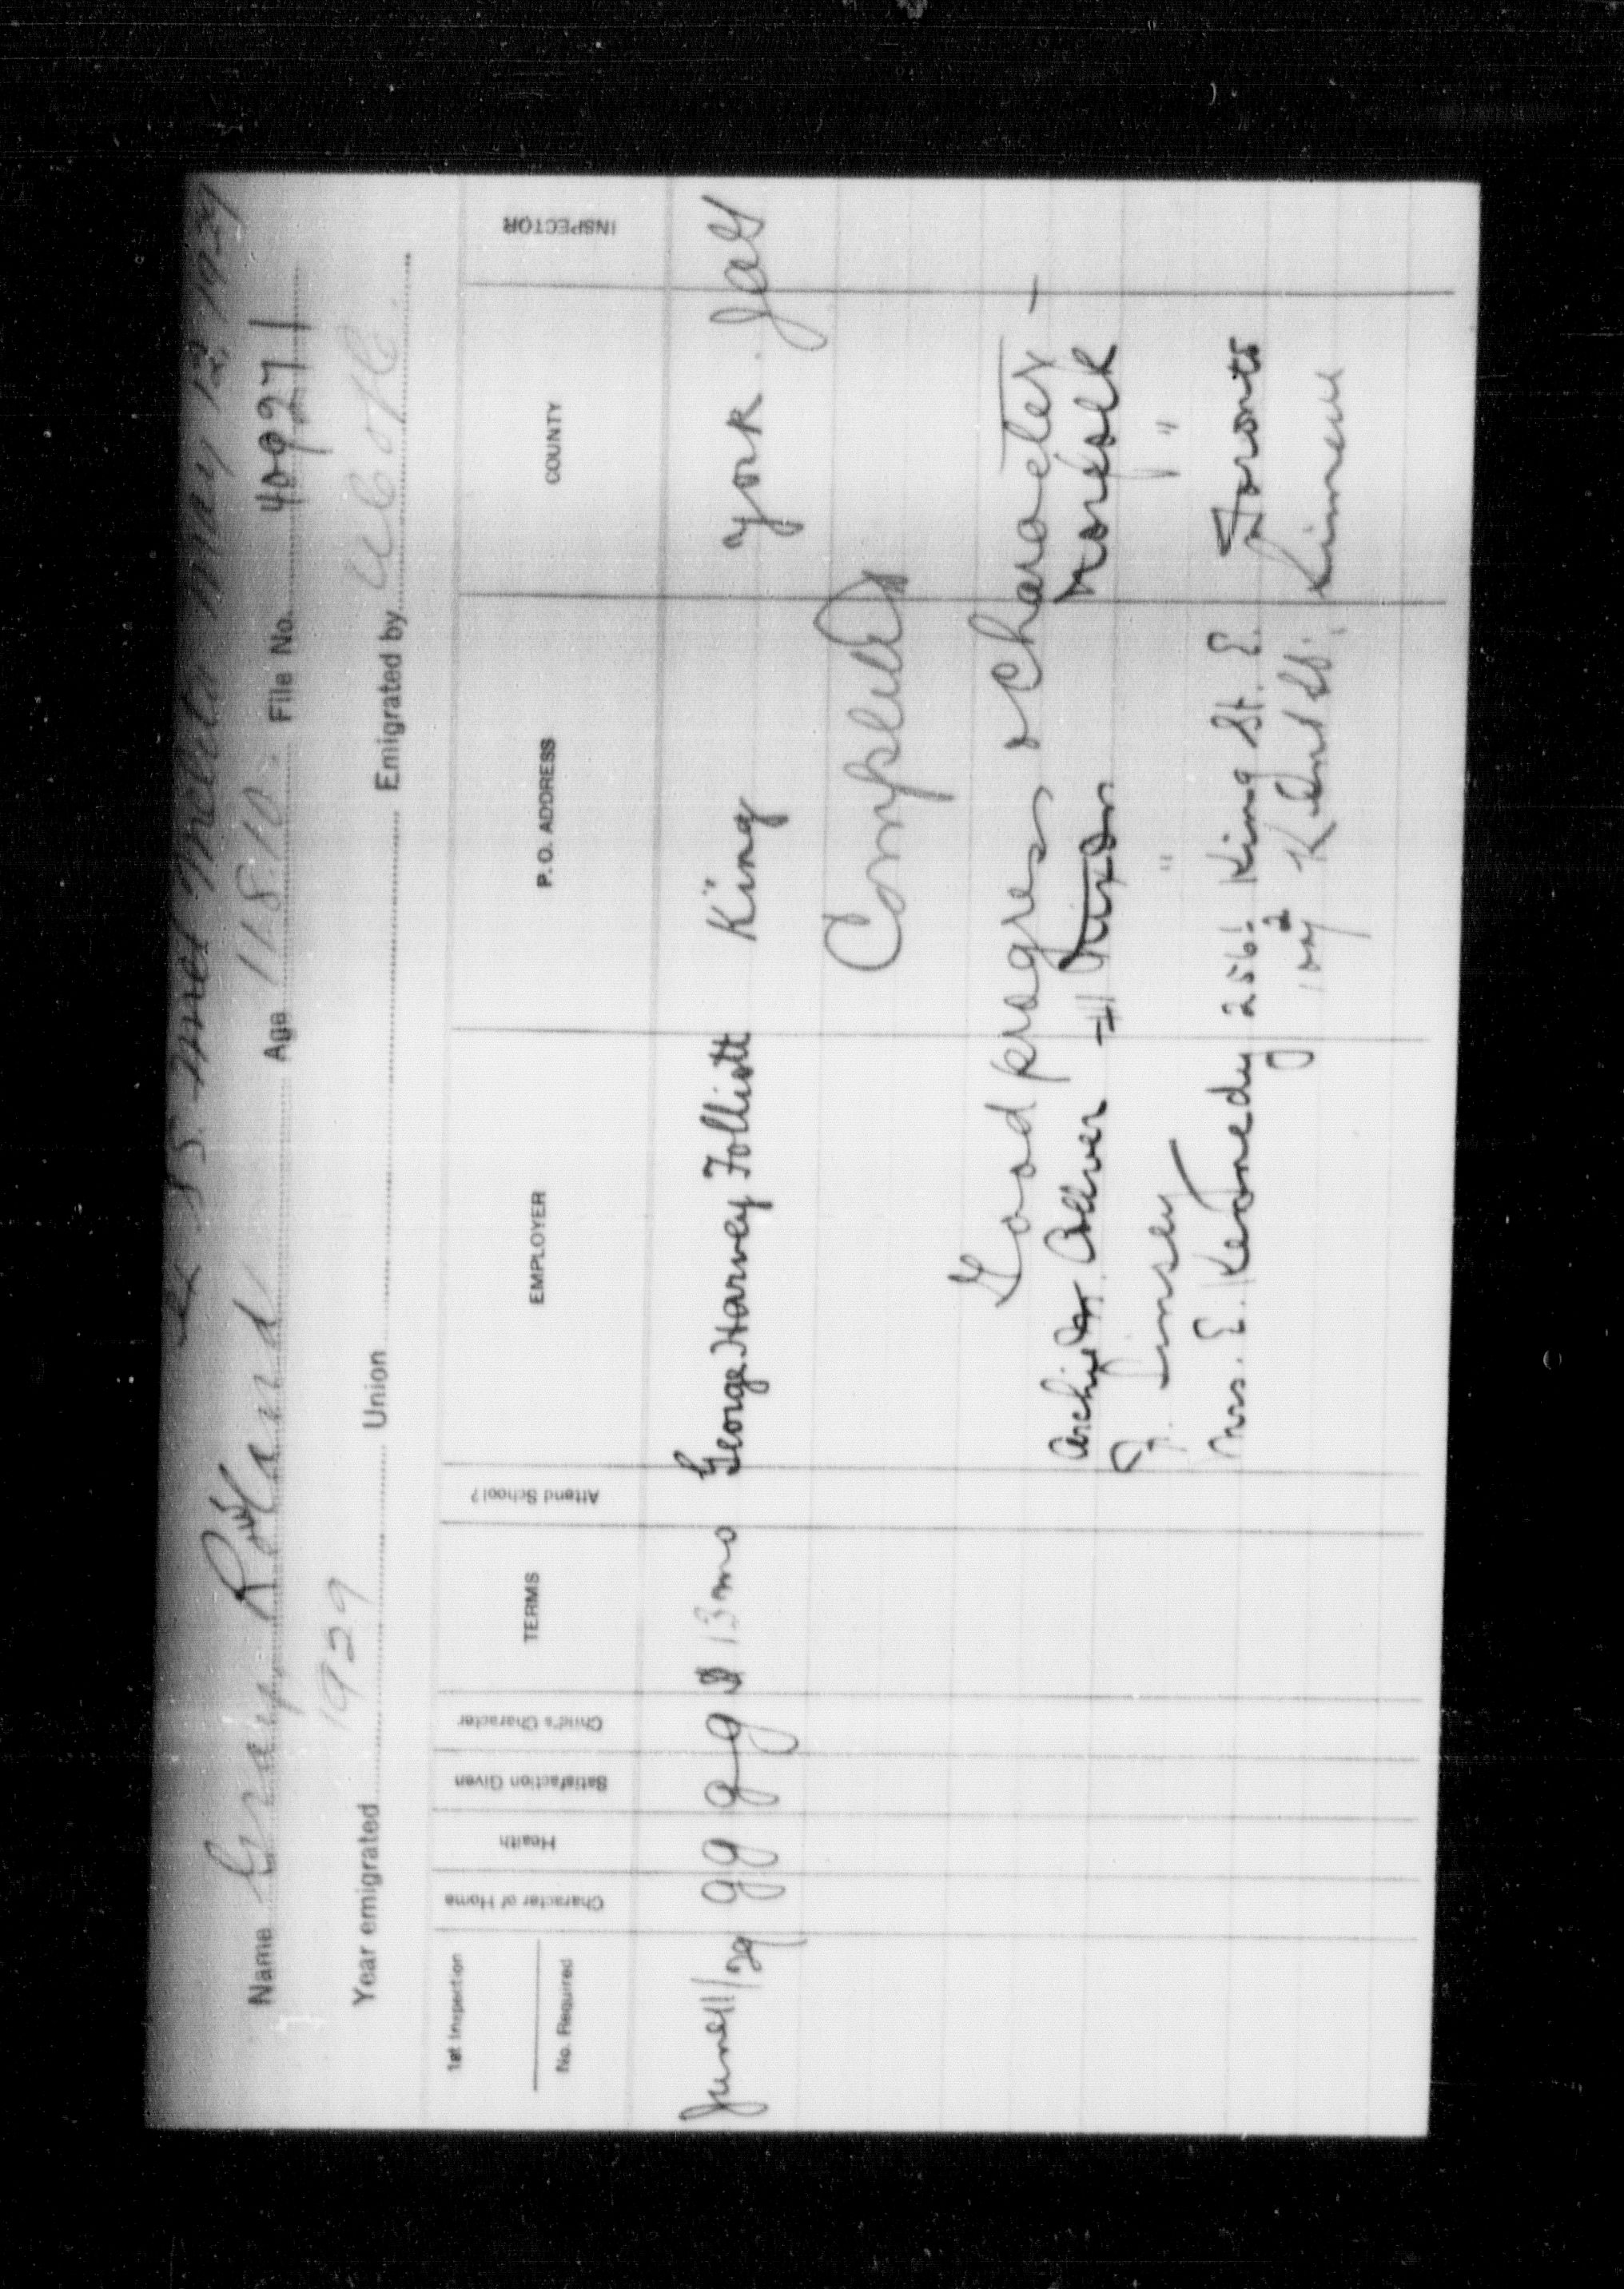 S.S. Melita May 12, 1929
Name Rowland Age 118.10. File No. 409271
Year emigrated 1929 Union Emigrated by
1st Inspection
No. Required Character of Home Health Satisfaction Given Child's Character TERMS Attend School? EMPLOYER P.O. ADDRESS COUNTY INSPECTOR
June 11/29 g g g g 13 mo George Harvey Folliott King York
Completed
Good progress & Character -
Archie Oliver #1 Nixon Norfolk
J. " "
Mrs. E. Kennedy 256 King St. E. Toronto
Kent St.